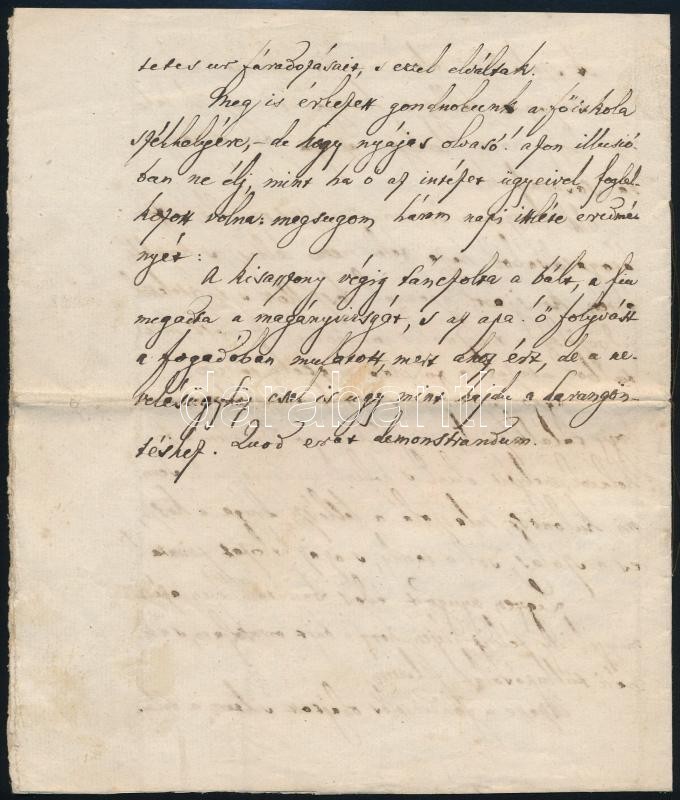 tetes ur fáradozásait, s ezzel elváltak.
Meg is érkezett gondnokunk a főiskola
székhelyére, – de hogy nyájas olvasó! azon illusió-
ban ne élj, mint ha ő az intézet ügyeivel foglal-
kozott volna: megsugom három napi ittléte eredmé-
nyét:
A kisasszony végig tánczolta a bált, a fiu
megadta a magányvizsgát, s az apa? ő folyvást
a fogadóban mulatott, mert ahoz ért, de a ne-
velésügyhez csak is ugy mint hajdu a harangön-
téshez. Quod erat demonstrandum.
darabanth